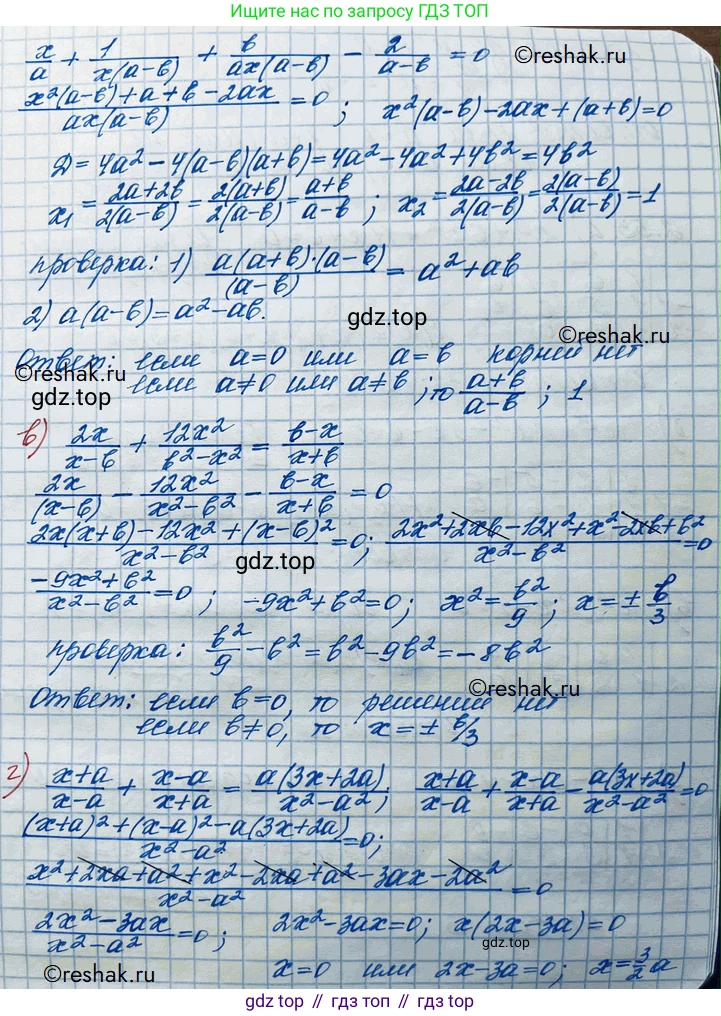 Ищите нас по запросу ГДЗ ТОП
x/a + 1/x(a-в) + в/ax(a-в) - 2/a-в = 0 ©reshak.ru
x²(a-в)+a+в-2ax/ax(a-в) = 0; x²(a-в)-2ax+(a+в)=0
Д=4a²-4(a-в)(a+в)=4a²-4a²+4в²=4в²
x₁=2a+2в/2(a-в)=2(a+в)/2(a-в)=a+в/a-в; x₂=2a-2в/2(a-в)=2(a-в)/2(a-в)=1
проверка: 1) a(a+в)·(a-в)/(a-в) = a²+aв
2) a(a-в)=a²-aв.
gdz.top
©reshak.ru
Ответ: если a=0 или a=в корней нет
©reshak.ru
если a≠0 или a≠в; то a+в/a-в; 1
gdz.top
в) 2x/x-в + 12x²/в²-x² = в-x/x+в
2x/(x-в) - 12x²/x²-в² - в-x/x+в = 0
2x(x+в)-12x²+(x-в)²/x²-в²=0; 2x²+2xв-12x²+x²-2xв+в²/x²-в²=0
gdz.top
-9x²+в²/x²-в²=0; -9x²+в²=0; x²=в²/9; x=±в/3
проверка: в²/9-в²=в²-9в²=-8в²
©reshak.ru
Ответ: если в=0, то решений нет
если в≠0, то x=±в/3
г) x+a/x-a + x-a/x+a = a(3x+2a)/x²-a²; x+a/x-a + x-a/x+a - a(3x+2a)/x²-a²=0
(x+a)²+(x-a)²-a(3x+2a)/x²-a²=0;
x²+2xa+a²+x²-2xa+a²-3ax-2a²/x²-a²=0
2x²-3ax/x²-a²=0; 2x²-3ax=0; x(2x-3a)=0
gdz.top
©reshak.ru
x=0 или 2x-3a=0; x=3/2a
©reshak.ru
gdz.top // гдз топ // гдз.топ